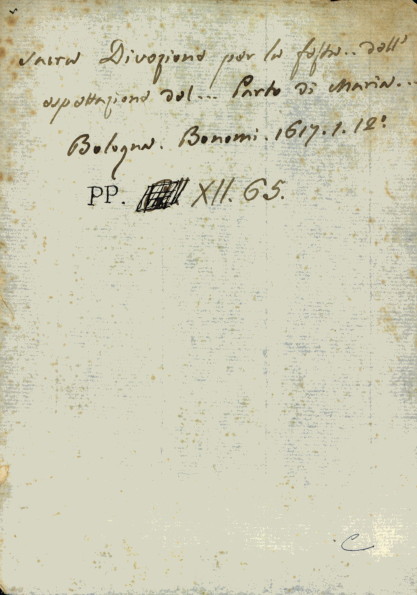 sacra Divozione per la festa.. dell'
espettazione del... Parto di Maria...
Bologna. Bonomi. 1617. 1. 12°.
PP. XII. 65.
C